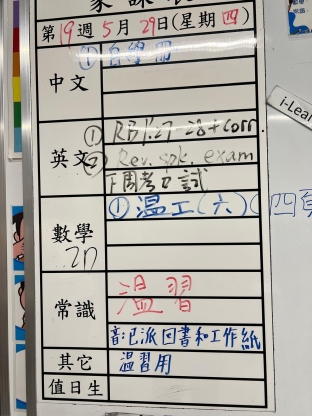 家課表
第19週5月29日(星期四)
中文 ① 自學冊
英文 ① RB P.27-28 + corr.
② Rev. spk. exam
下周考口試
數學 ① 溫工(六)(四頁
2D
常識 溫習
音:已派回書和工作紙
其它 溫習用
值日生
i-Lear